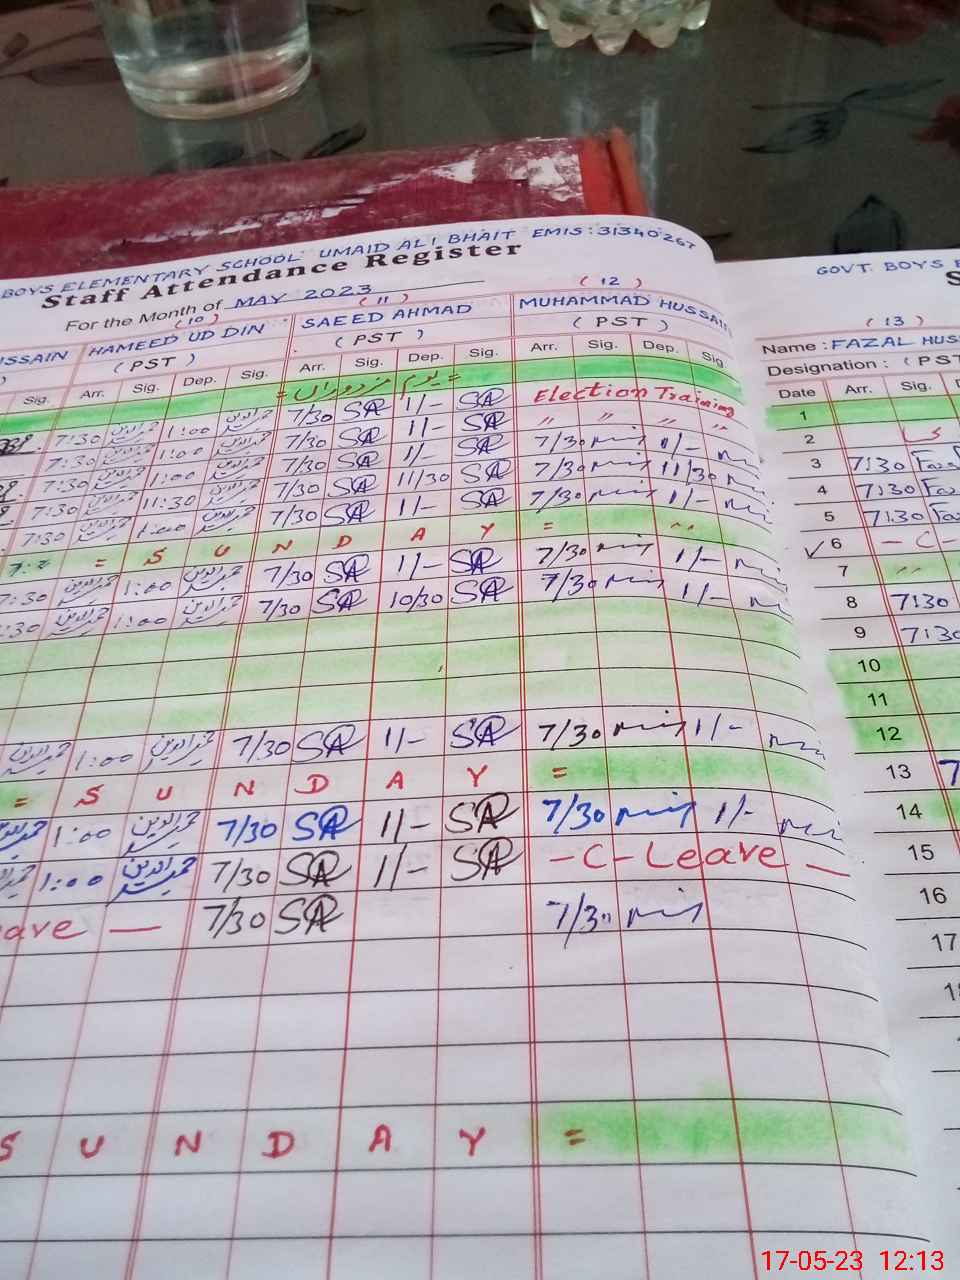 BOYS ELEMENTARY SCHOOL UMAID ALI BHAIT EMIS: 31340267
Staff Attendance Register
For the Month of MAY 2023
(10) (11) (12)
SSAIN HAMEED UD DIN SAEED AHMAD MUHAMMAD HUSSAIN
) (PST) (PST) (PST)
Sig. Arr. Sig. Dep. Sig. Arr. Sig. Dep. Sig. Arr. Sig. Dep. Sig
= یوم مزدوراں =
7:30 حمیدالدین 1:00 حمیدالدین 7/30 SA 1/- SA Election Training
7:30 حمیدالدین 1:00 حمیدالدین 7/30 SA 1/- SA " " " "
7:30 حمیدالدین 1:00 حمیدالدین 7/30 SA 1/- SA 7/30 1/-
7:30 حمیدالدین 11:30 حمیدالدین 7/30 SA 11/30 SA 7/30 11/30
7:30 حمیدالدین 1:00 حمیدالدین 7/30 SA 1/- SA 7/30 1/-
= S U N D A Y = "
7:30 حمیدالدین 1:00 حمیدالدین 7/30 SA 1/- SA 7/30 1/-
:30 حمیدالدین 1:00 حمیدالدین 7/30 SA 10/30 SA 7/30 1/-
حمیدالدین 1:00 حمیدالدین 7/30 SA 1/- SA 7/30 1/-
= S U N D A Y =
حمیدالدین 1:00 حمیدالدین 7/30 SA 1/- SA 7/30 1/-
حمیدالدین 1:00 حمیدالدین 7/30 SA 1/- SA - C - Leave -
eave — 7/30 SA 7/30
S U N D A Y =
GOVT. BOYS E
S
(13)
Name : FAZAL HUS
Designation : (PST
Date Arr. Sig. D
1
2
3 7:30
4 7:30
5 7:30
✓ 6 - C -
7 "
8 7:30
9 7:30
10
11
12
13 7
14
15
16
17
18
17-05-23 12:13